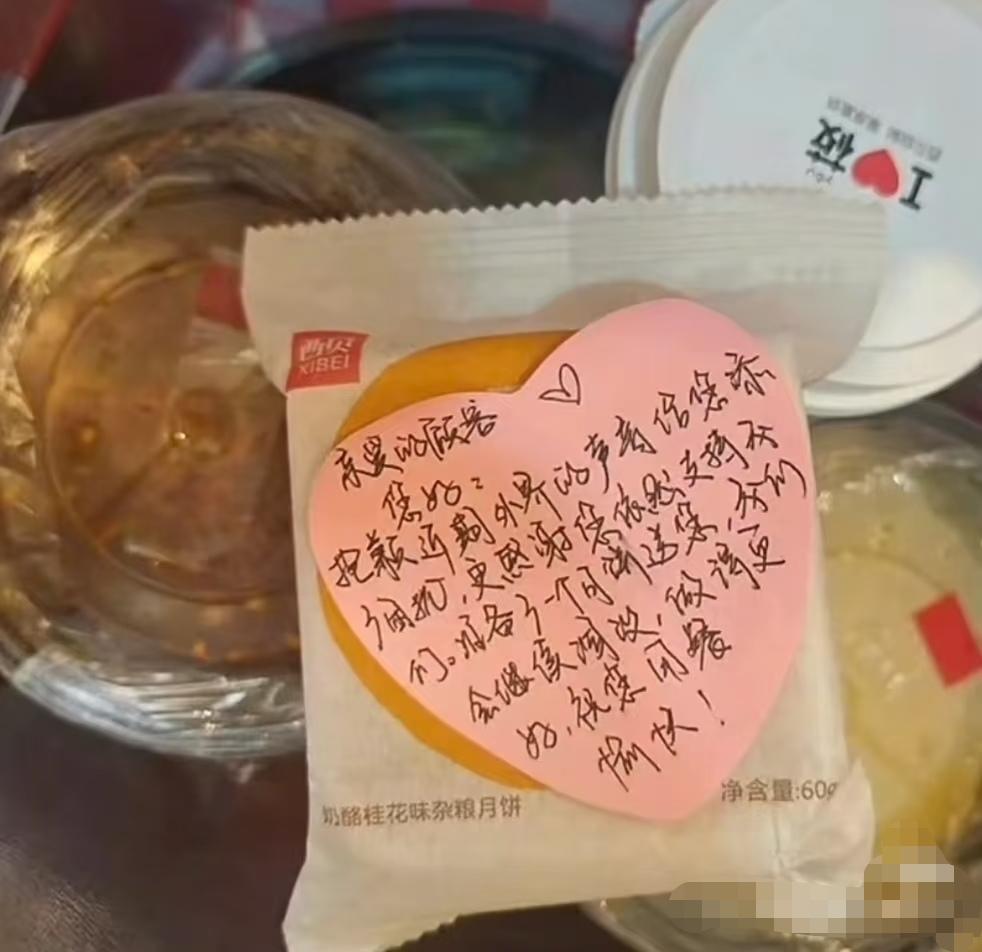 I❤莜
yóu
西贝
XIBEI
亲爱的顾客
您好：
抱歉近期外界的声音给您添
了困扰，更感谢您依然支持我
们。准备了一个月饼送您，我们
会继续调改，做得更
好，祝您用餐
愉快！
奶酪桂花味杂粮月饼
净含量:60g